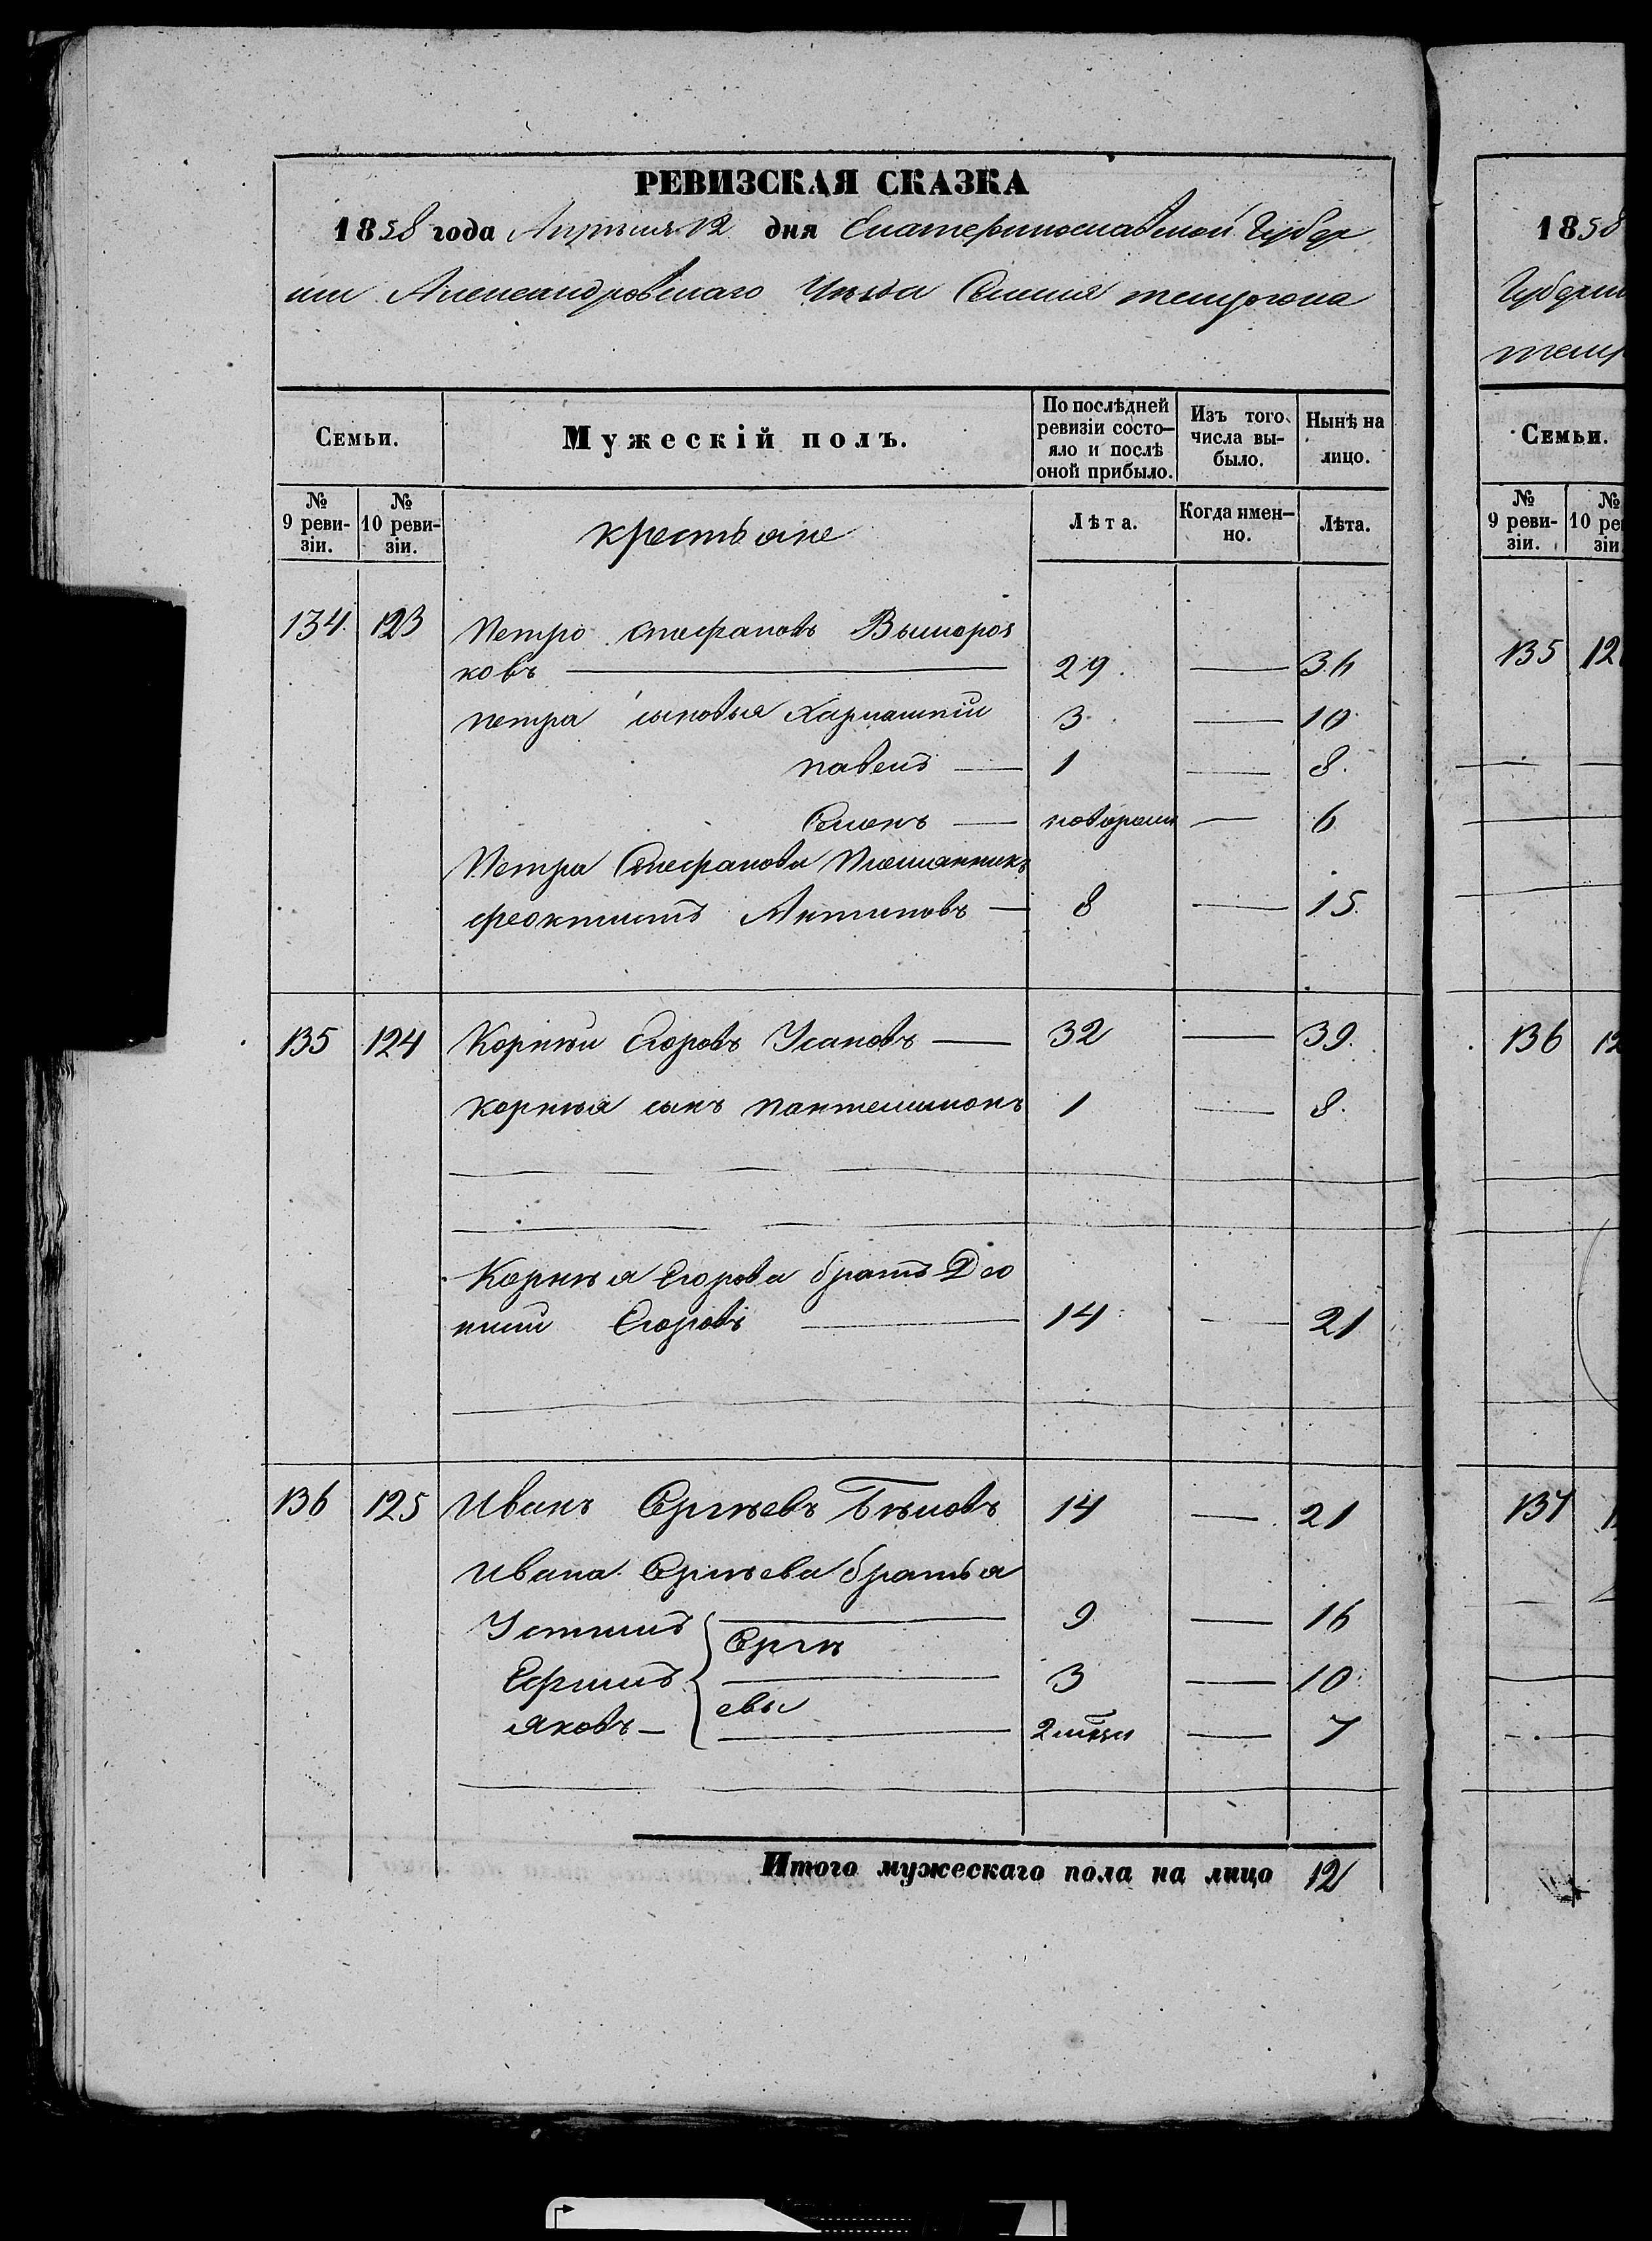 РЕВИЗСКАЯ СКАЗКА
1858 года Апрѣля 12 дня Екатеринославской Губер
нии Александровскаго Уѣзда Селенія темрюка
Семьи.
Мужескій полъ.
По послѣдней ревизіи состо-яло и послѣ оной прибыло.
Изъ того числа вы-было.
Нынѣ на лицо.
№ 9 реви-зіи.
№ 10 реви-зіи.
крестьяне
Лѣта.
Когда имен-но.
Лѣта.
134. 123 Петро Стефановъ Выморос
ковъ — 29. — 36
петра сыновья Харлампій 3. — 10
павелъ — 1 — 8.
Семенъ — новорожд — 6
Петра Стефанова Племянникъ
феоктистъ Антиповъ — 8 — 15.
135 124 Корнѣй Егоровъ Усановъ — 32 — 39.
корнѣя сынъ пантелимонъ 1 — 8.
Корнѣя Егорова братъ Део
нисій Егоровъ — 14 — 21
136 125 Иванъ Сергѣевъ Бѣловъ 14 — 21
Ивана Сергѣева братья
Устинъ — 9 — 16
Сергѣ
Ефимъ — 3 — 10
евы
Яковъ — 2 мѣся — 7
Итого мужескаго пола на лицо 12
1858
Губерни
темр
Семьи.
№ 9 реви-зіи.
№ 10 ре зіи
135 12
136 12
137 1